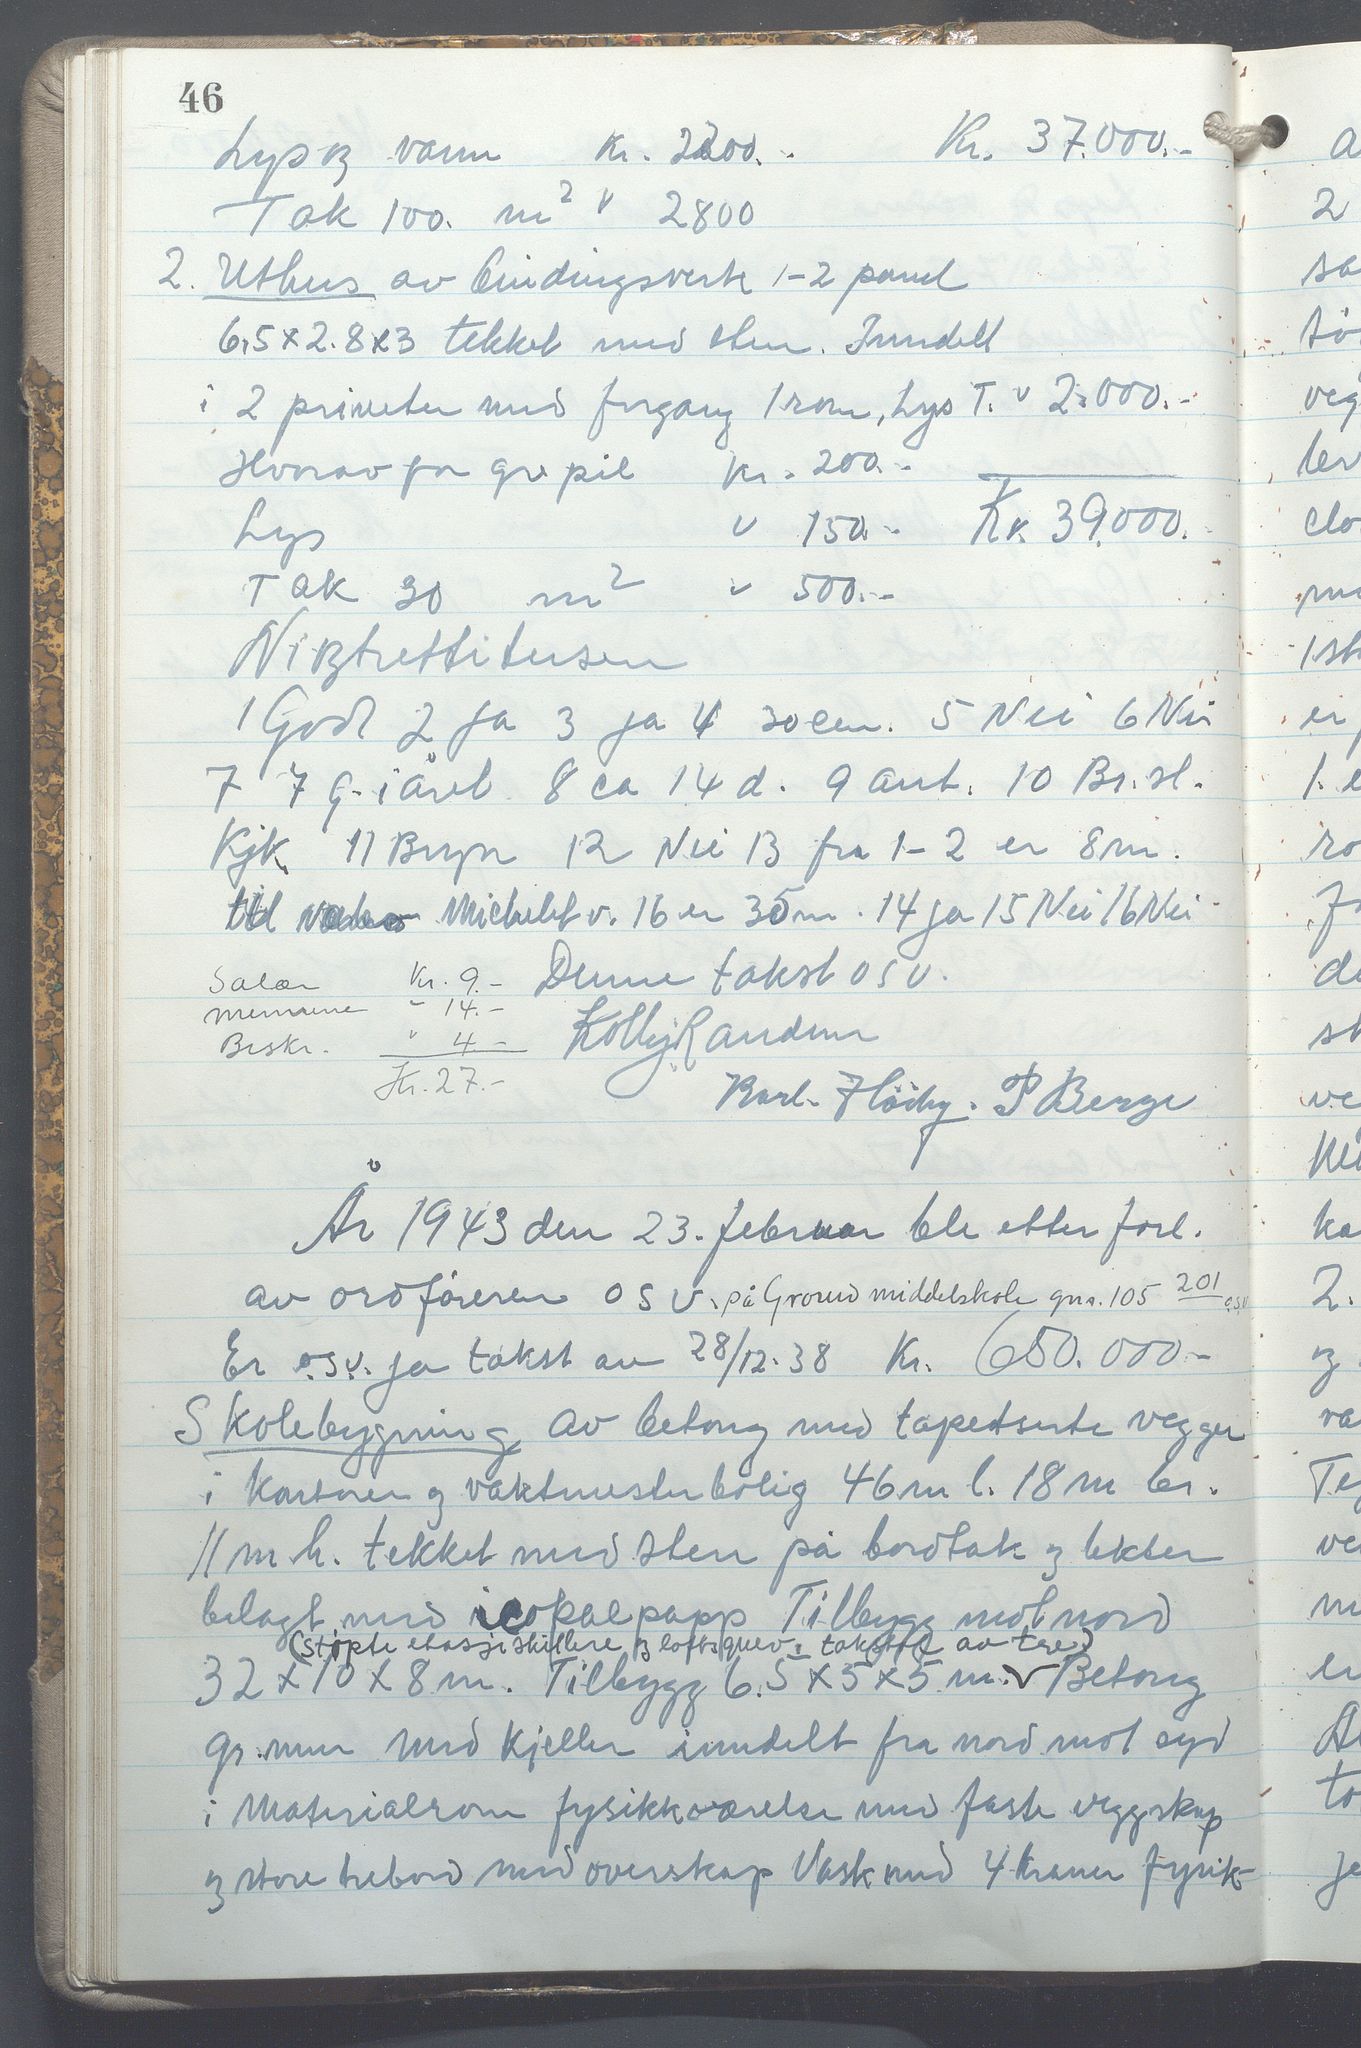 46
Lys og vann Kr. 2200.- Kr. 37.000.-
Tak 100. m² " 2800
2. Uthus av bindingsverk 1-2 panel
6,5 x 2.8 x 3 tekket med sten. Inndelt
i 2 priveter med forgang 1 rom, Lys T. " 2.000.-
Hvorav for gr pil Kr. 200.-
Lys " 150.- Kr. 39.000.-
Tak 30 m² " 500.-
Niogtrettitusen
1 Godt 2 ja 3 ja 4 30 cm. 5 Nei 6 Nei
7 7 g. i året 8 ca 14 d. 9 ant. 10 Br. sl.
Kjk. 11 Bryn 12 Nei 13 fra 1-2 er 8 m.
til Michelet v. 16 er 35 m. 14 ja 15 Nei 16 Nei
Salær Kr. 9.- Denne takst osv.
Mennene " 14.-
Beskr. " 4 - Kolbj Randem
Kr. 27.-
Karl. Flåtby. P Berge
År 1943 den 23. februar ble etter forl.
av ordføreren osv. på Grorud middelskole gnr. 105 201 o.s.v
Er o.s.v. ja takst av 28/12.38 Kr. 650.000.-
Skolebygning av betong med tapetserte vegger
i kontorer og vaktmesterbolig 46 m l. 18 m br.
11 m h. tekket med sten på bordtak og lekter
belagt med icopalpapp Tilbygg mot nord
(støpte etasjeskillere og loftsgulv, takstol av tre)
32 x 10 x 8 m. Tilbygg 6.5 x 5 x 5 m. V Betong
gr.mur med kjeller inndelt fra nord mot syd
i Materialrom fysikkværelse med faste veggskap
og store trebord med overskap Vask med 4 kraner fysik-